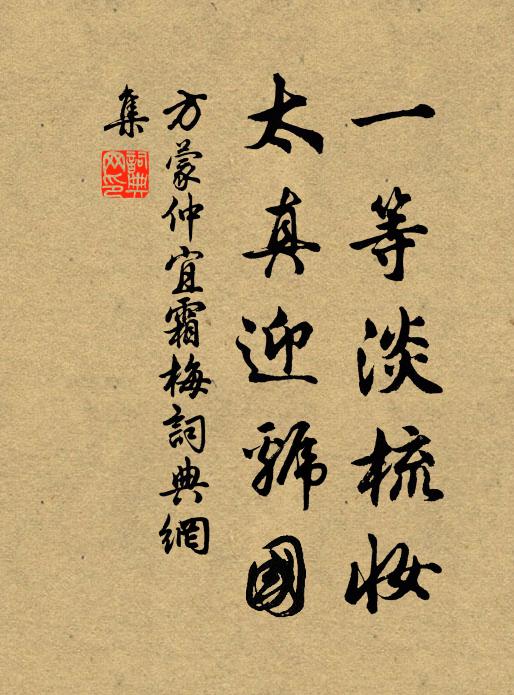 一等淡梳妝
太真迎虢國
方蒙仲宜霜梅詞典網
集
詞典
网印